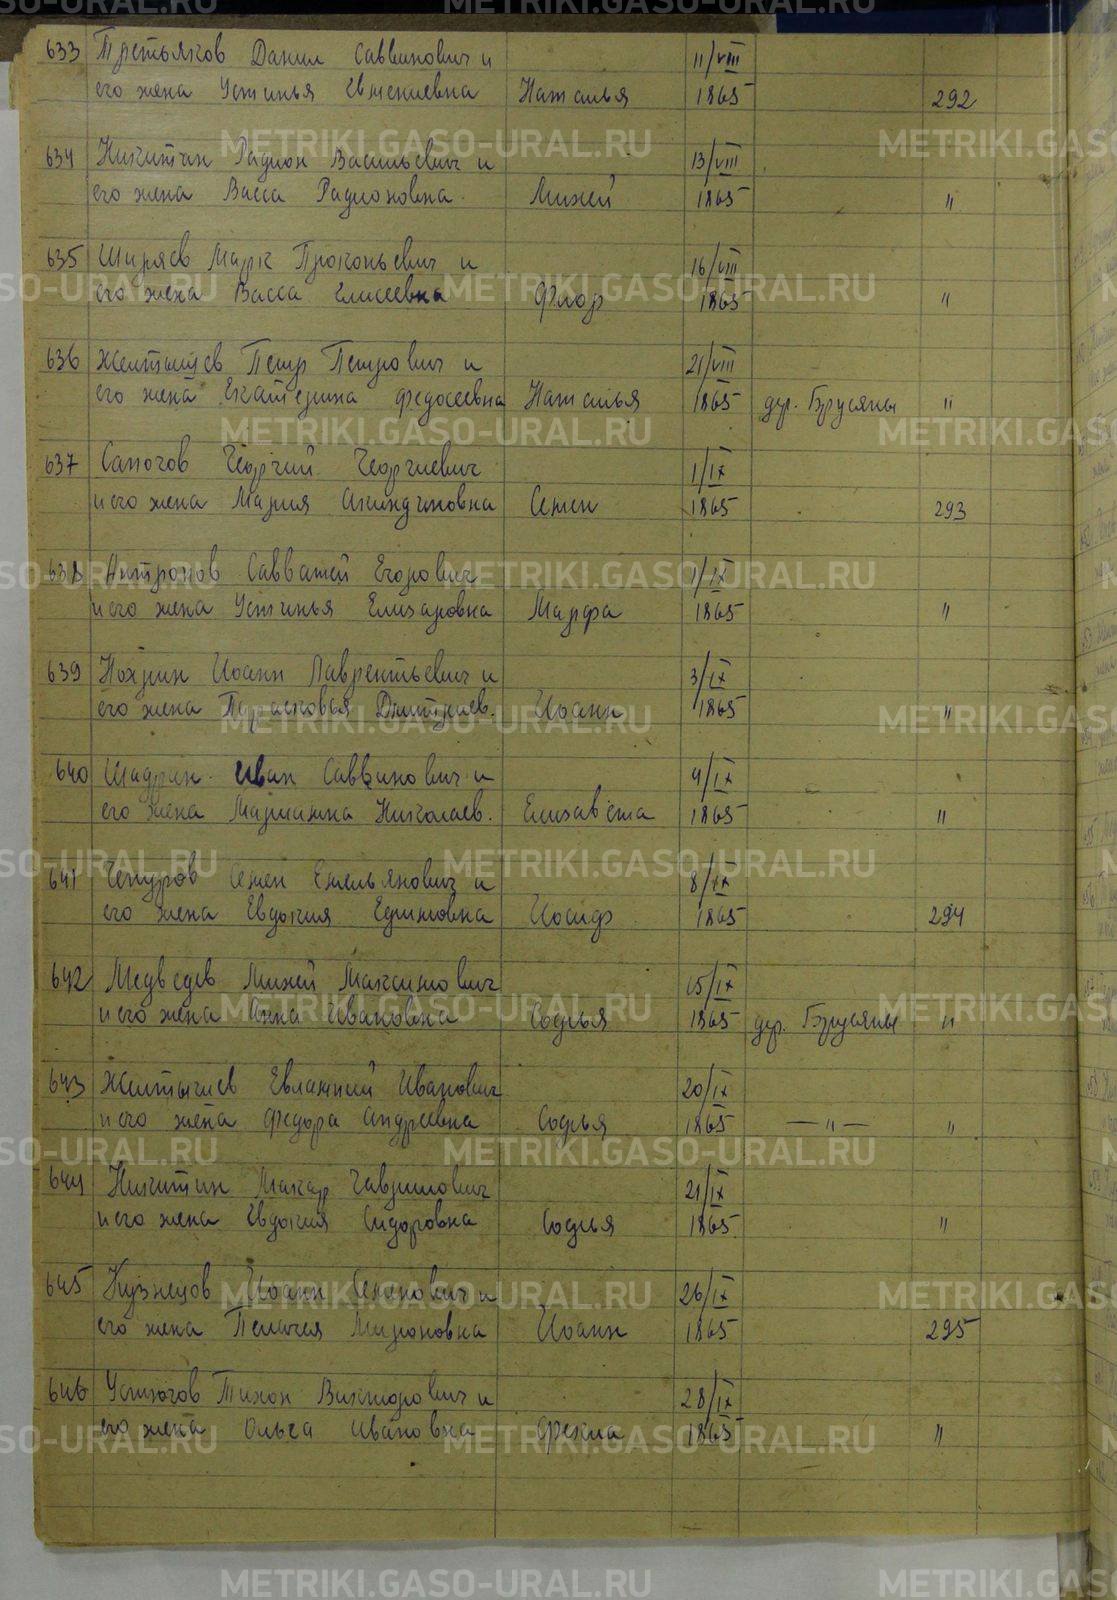 633 Третьяков Данил Саввинович и 11/VIII
его жена Устинья Евгениевна Наталья 1865 292
634 Никитин Радион Васильевич и 13/VIII
его жена Васса Радионовна Михей 1865 "
635 Ширяев Марк Прокопьевич и 16/VIII
его жена Васса Елисеевна Флор 1865 "
636 Желтышев Петр Петрович и 21/VIII
его жена Екатерина Федосеевна Наталья 1865 дер. Брусяны "
637 Сапогов Георгий Георгиевич 1/IX
и его жена Мария Акиндиновна Семен 1865 293
638 Антропов Савватей Егорович 1/IX
и его жена Устинья Елизаровна Марфа 1865 "
639 Кохрин Иоанн Лаврентьевич и 3/IX
его жена Парасковья Дмитриев. Иоанн 1865 "
640 Шадрин Иван Саввинович и 4/IX
его жена Марианна Николаев. Елизавета 1865 "
641 Чепуров Семен Емельянович и 8/IX
его жена Евдокия Ефимовна Иосиф 1865 294
642 Медведев Михей Максимович 15/IX
и его жена Анна Ивановна Софья 1865 дер. Брусяны "
643 Желтышев Евлампий Иванович 20/IX
и его жена Федора Андреевна Софья 1865 — " — "
644 Никитин Макар Гаврилович 21/IX
и его жена Евдокия Сидоровна Софья 1865 "
645 Кузнецов Иоанн Семенович и 26/IX
его жена Пелагея Мироновна Иоанн 1865 295
646 Устюгов Тихон Викторович и 28/IX
его жена Ольга Ивановна Фекла 1865 "
METRIKI.GASO-URAL.RU